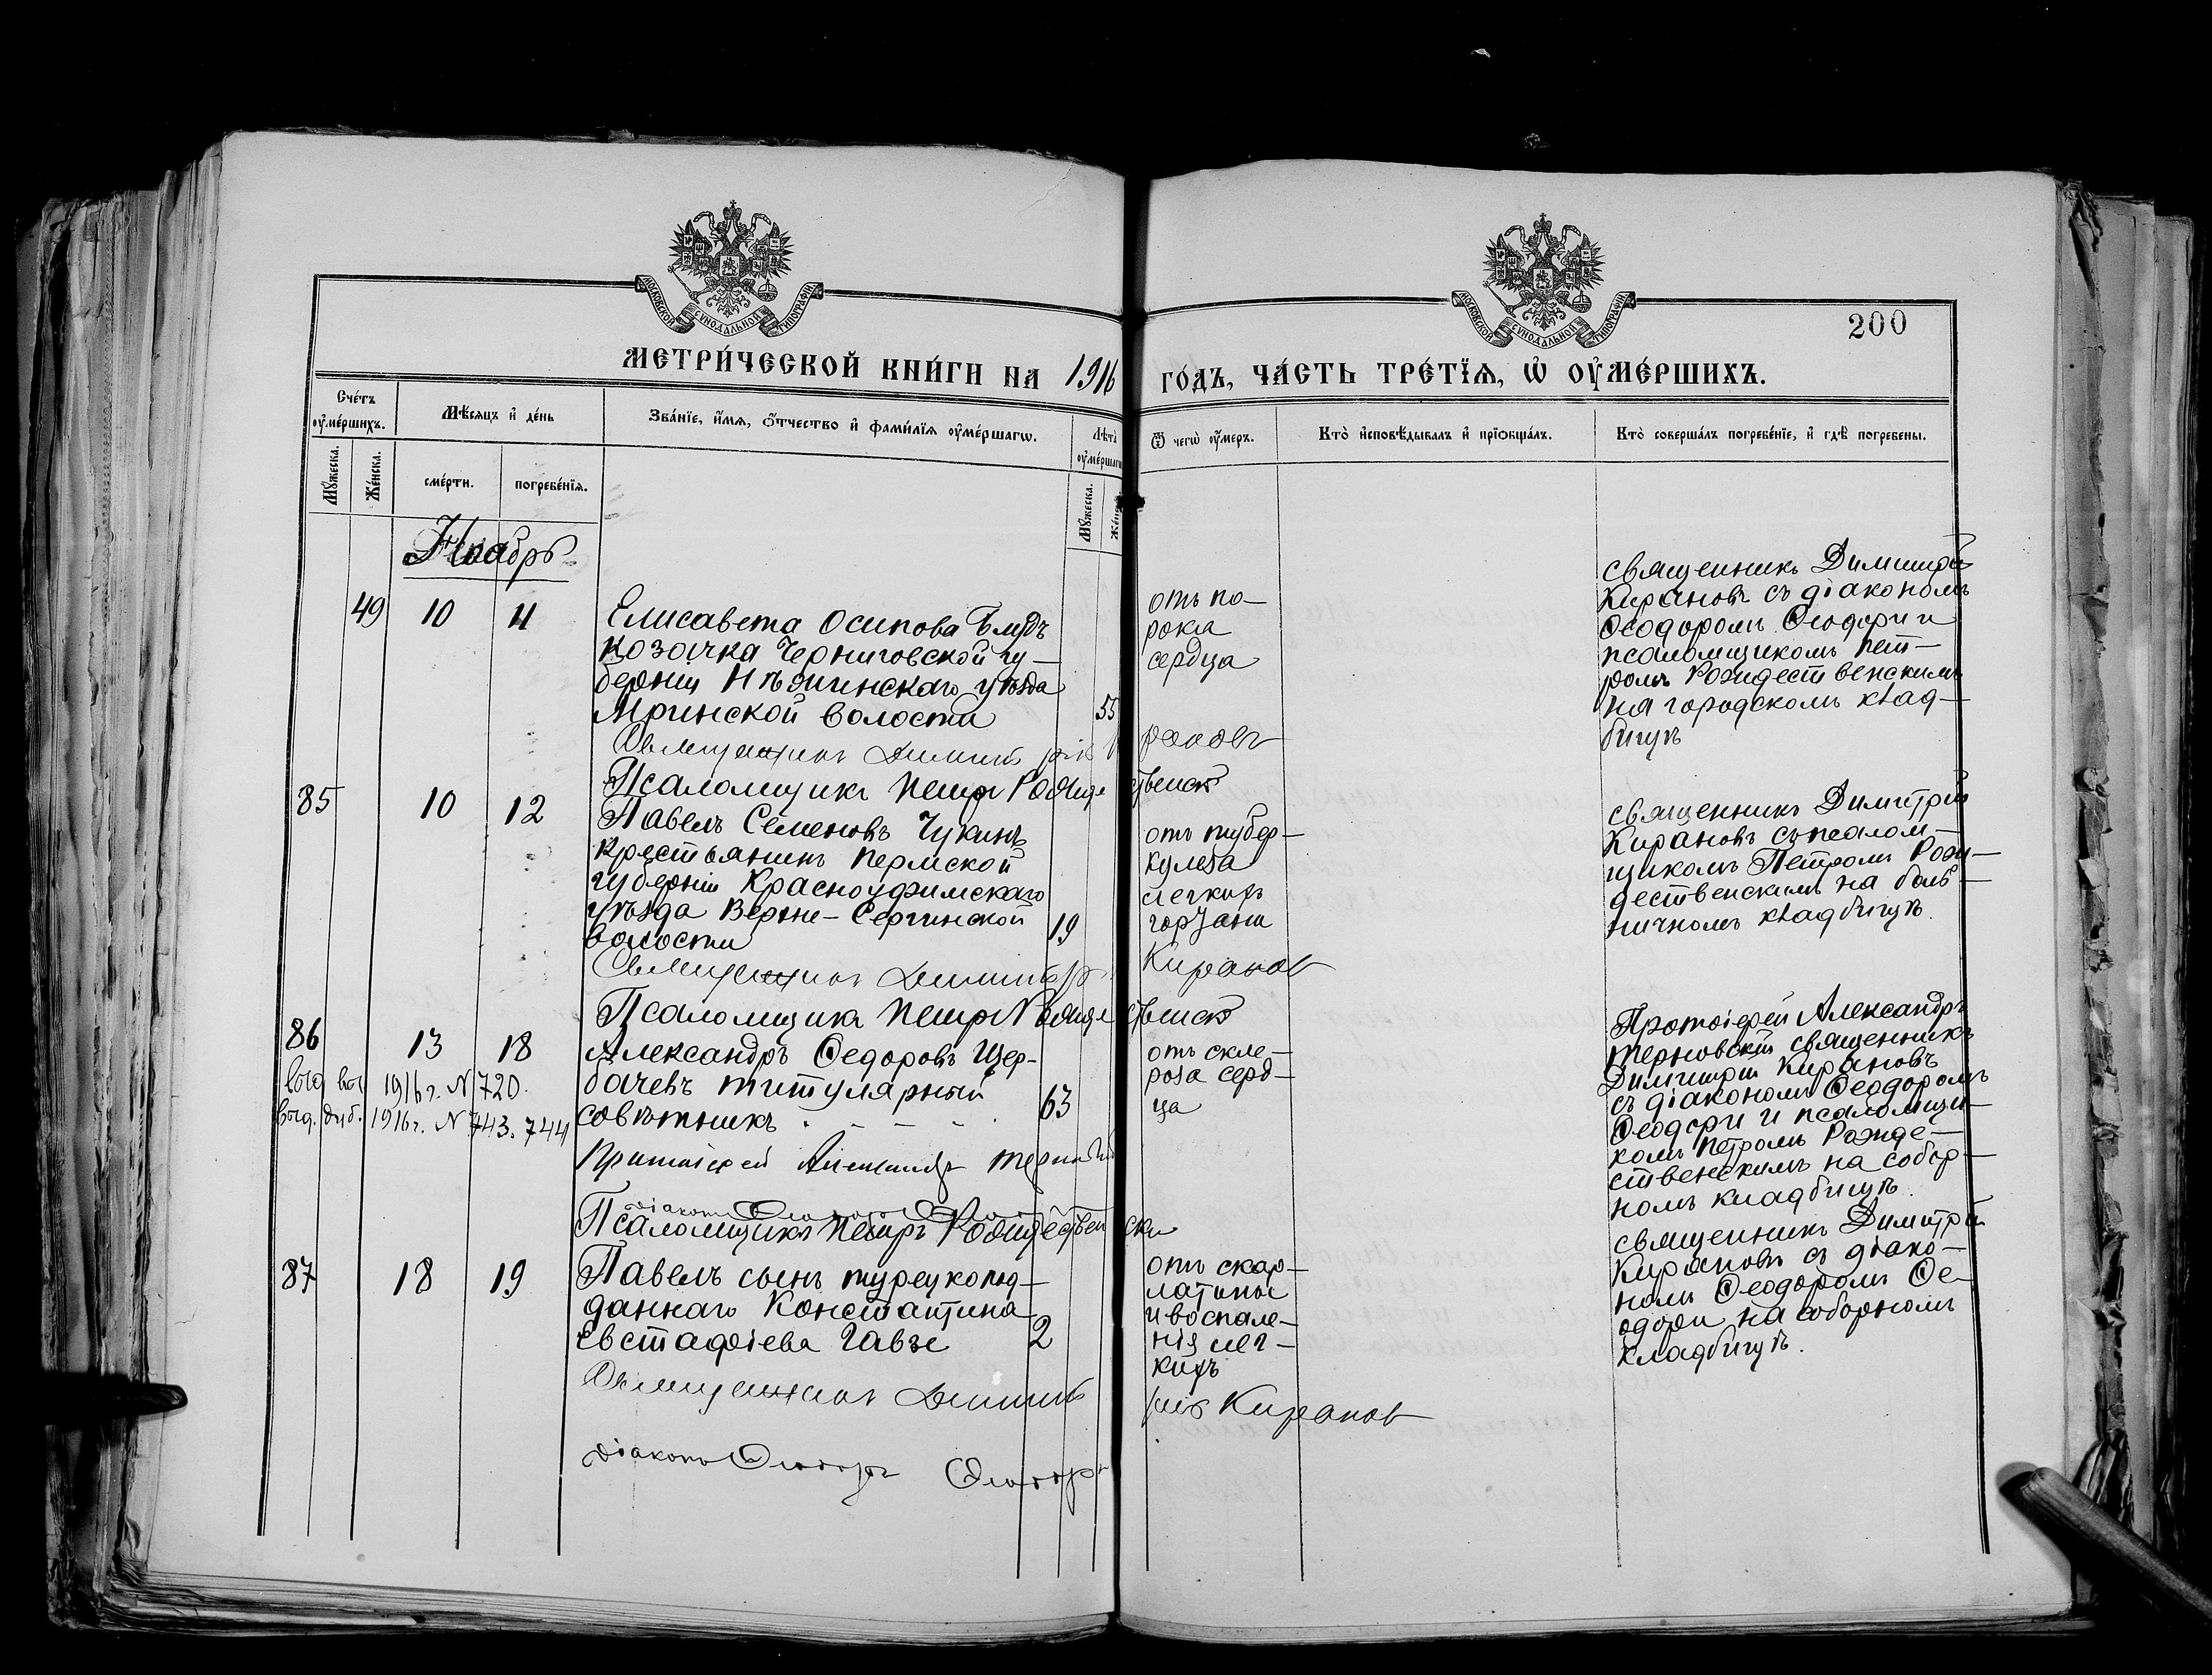 МОСКОВСКОЙ СѴНОДАЛЬНОЙ ТИПОГРАФІИ
МОСКОВСКОЙ СѴНОДАЛЬНОЙ ТИПОГРАФІИ
200
МЕТРИ́ЧЕСКОЙ КНИ́ГИ НА 1916 ГО́ДЪ, ЧА́СТЬ ТРЕ́ТЇѦ, Ѡ҆ ОУ҆МЕ́РШИХЪ.
Сче́тъ оу҆ме́ршихъ.
Мѣ́сѧцъ и҆ де́нь
Зва́нїе, и҆́мѧ, ѻ҆́тчество и҆ фами́лїѧ оу҆ме́ршагѡ.
Лѣ́та оу҆ме́ршагѡ
Ѿ чегѡ̀ оу҆́меръ.
Кто̀ и҆сповѣ́дывалъ и҆ прїѡбща́лъ.
Кто̀ соверша́лъ погребе́нїе, и҆ гдѣ̀ погребены.
Мꙋ́жеска.
Же́нска.
сме́рти.
погребе́нїѧ.
Мꙋ́жеска.
Ноябрь
49 10 11
Елисавета Осипова
козачка Черниговской гу-
берніи Нѣжинскаго уѣзда
Мринской волости 55
отъ по-
рока
сердца
священникъ Димитрій
Кирановъ съ діакономъ
Ѳеодоромъ Ѳеодори и
псаломщикомъ Пет-
ромъ Рождественскимъ
на городскомъ клад-
бищѣ
Священникъ Димитрій Кирановъ
Псаломщикъ Петръ Рождественск
85 10 12
Павелъ Семеновъ Чукинъ
крестьянинъ Пермской
губерніи Красноуфимскаго
уѣзда Верхне-Сергинской
волости 19
отъ тубер-
кулеза
легкихъ
гортани
священникъ Димитрій
Кирановъ съ псалом-
щикомъ Петромъ Рож-
дественскимъ на боль-
ничномъ кладбищѣ.
Священникъ Димитр Киранов
Псаломщикъ Петръ Рождественск
86 13 18
1916 г. N 720.
выд. 1916 г. N 743. 744
Александръ Ѳедоровъ Щер-
бачевъ титулярный
совѣтникъ 63
отъ скле-
роза серд-
ца
Протоіерей Александръ
Терновскій священникъ
Димитрій Кирановъ
съ діакономъ Ѳеодоромъ
Ѳеодори и псаломщи-
комъ Петромъ Рожде-
ственскимъ на собор-
номъ кладбищѣ.
Протоіерей Александръ Терновскій
діаконъ Ѳеодоръ Ѳеодори
Псаломщикъ Петръ Рождественски
87 18 19
Павелъ сынъ турецкопод-
даннаго Константина
Евстафіева Гавзе 2
отъ скар-
латины
и воспале-
нія лег-
кихъ
священникъ Димитрій
Кирановъ съ діако-
номъ Ѳеодоромъ Ѳе-
одори на соборномъ
кладбищѣ.
Священникъ Димитрій Киранов
діаконъ Ѳеодоръ Ѳеодори